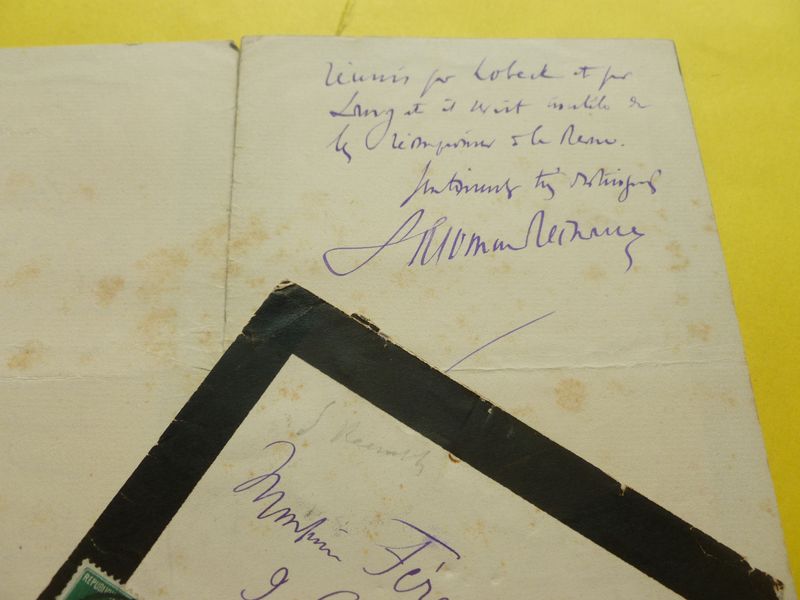 réunis par Lobeck et par
Lang et il serait inutile de
les réimprimer à la Revue.
Sentiments très distingués
S Reinach
Monsieur Fér
REPUBLIQU